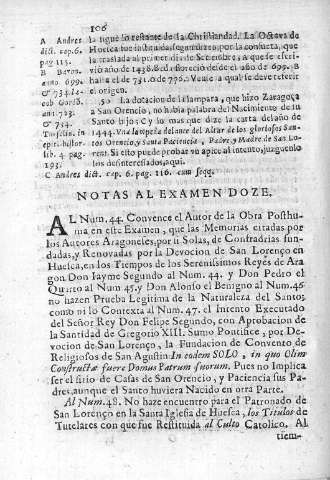 106
A Andres la sigue lo restante de la Christiandad. La Octava de
dict. cap. 6. Huesca fue instituida segun dizen, por la consueta, que
pag 115. la traslada al primer dia de Setiembre, a que se escri-
B Baron. vio año de 1438. S. Isidro floreció desde el año de 699. B
anno 699. hasta el 731. o de 776. Veale a qual se deve retener
& 734. La- el origen.
cob Gordõ. 50 La dotacion de la lampara, que hizo Zaragoça
ani. 723. a San Orencio, no habia palabra del Nacimiento de su
& 724. Santo hijo; C y lo mas que dize la carta del año de
Turselin. in 1444. Una lampeda delante del Altar de los gloriosos San-
epit. histor. tos Orencio, y Santa Paciencia, Padre, y Madre de San Lo-
lib. 4. pag renz. Si esto puede probar un apice al intento, juzguenlo
193. los desinteressados, aqui.
C Andres dict. cap. 6. pag. 116. cum seqq.
NOTAS AL EXAMEN DOZE.
AL Num. 44. Convence el Autor de la Obra Posthu-
ma en este Examen, que las Memorias citadas por
los Autores Aragoneses, por si Solas, de Confradrias fun-
dadas, y Renovadas por la Devocion de San Lorenço en
Huesca, en los Tiempos de los Serenissimos Reyes de Ara-
gon Don Iayme Segundo al Num. 44. y Don Pedro el
Quarto al Num 45. y Don Alonso el Benigno al Num. 46.
no hazen Prueba Legitima de la Naturaleza del Santo;
como ni lo Contexta al Num. 47. el Intento Executado
del Señor Rey Don Felipe Segundo, con Aprobacion de
la Santidad de Gregorio XIII. Sumo Pontifice, por De-
vocion de San Lorenço, la Fundacion de Convento de
Religiosos de San Agustin In eodem SOLO, in quo Olim
Constructæ fuere Domus Patrum suorum. Pues no Implica
ser el sitio de Casas de San Orencio, y Paciencia sus Pa-
dres, aunque el Santo huviera Nacido en otra Parte.
Al Num. 48. No haze encuentro para el Patronado de
San Lorenço en la Santa Iglesia de Huesca, los Titulos de
Tutelares con que fue Restituida al Culto Catolico. Al
tiem-